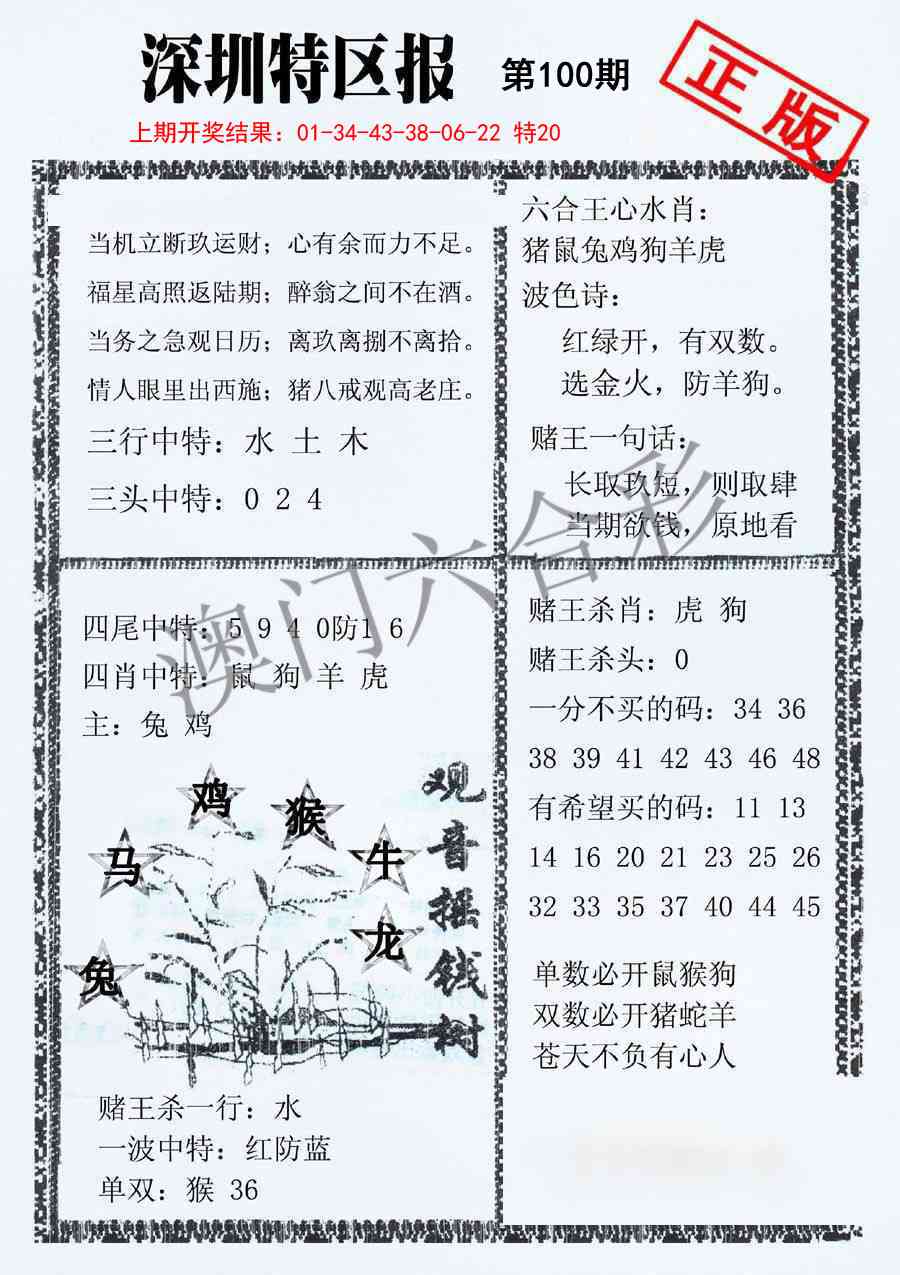 深圳特区报 第100期
正版
上期开奖结果：01-34-43-38-06-22 特20
当机立断玖运财；心有余而力不足。
福星高照返陆期；醉翁之间不在酒。
当务之急观日历；离玖离捌不离拾。
情人眼里出西施；猪八戒观高老庄。
三行中特：水 土 木
三头中特：0 2 4
六合王心水肖：
猪鼠兔鸡狗羊虎
波色诗：
红绿开，有双数。
选金火，防羊狗。
赌王一句话：
长取玖短，则取肆
当期欲钱，原地看
澳门六合彩
四尾中特：5 9 4 0防1 6
四肖中特：鼠 狗 羊 虎
主：兔 鸡
鸡
猴
马
牛
龙
兔
观音摇钱树
赌王杀一行：水
一波中特：红防蓝
单双：猴 36
赌王杀肖：虎 狗
赌王杀头：0
一分不买的码：34 36
38 39 41 42 43 46 48
有希望买的码：11 13
14 16 20 21 23 25 26
32 33 35 37 40 44 45
单数必开鼠猴狗
双数必开猪蛇羊
苍天不负有心人